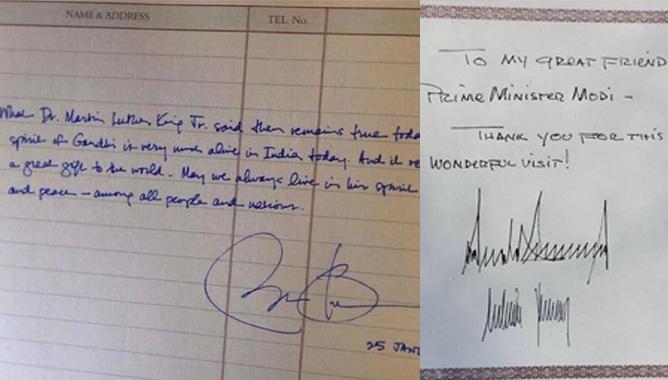 NAME & ADDRESS
TEL. No.
What Dr. Martin Luther King Jr. said then remains true toda
spirit of Gandhi is very much alive in India today. And it re
a great gift to the world. May we always live in his spirit
and peace – among all people and nations.
25 JAN
TO MY GREAT FRIEND
PRIME MINISTER MODI –
THANK YOU FOR THIS
WONDERFUL VISIT!